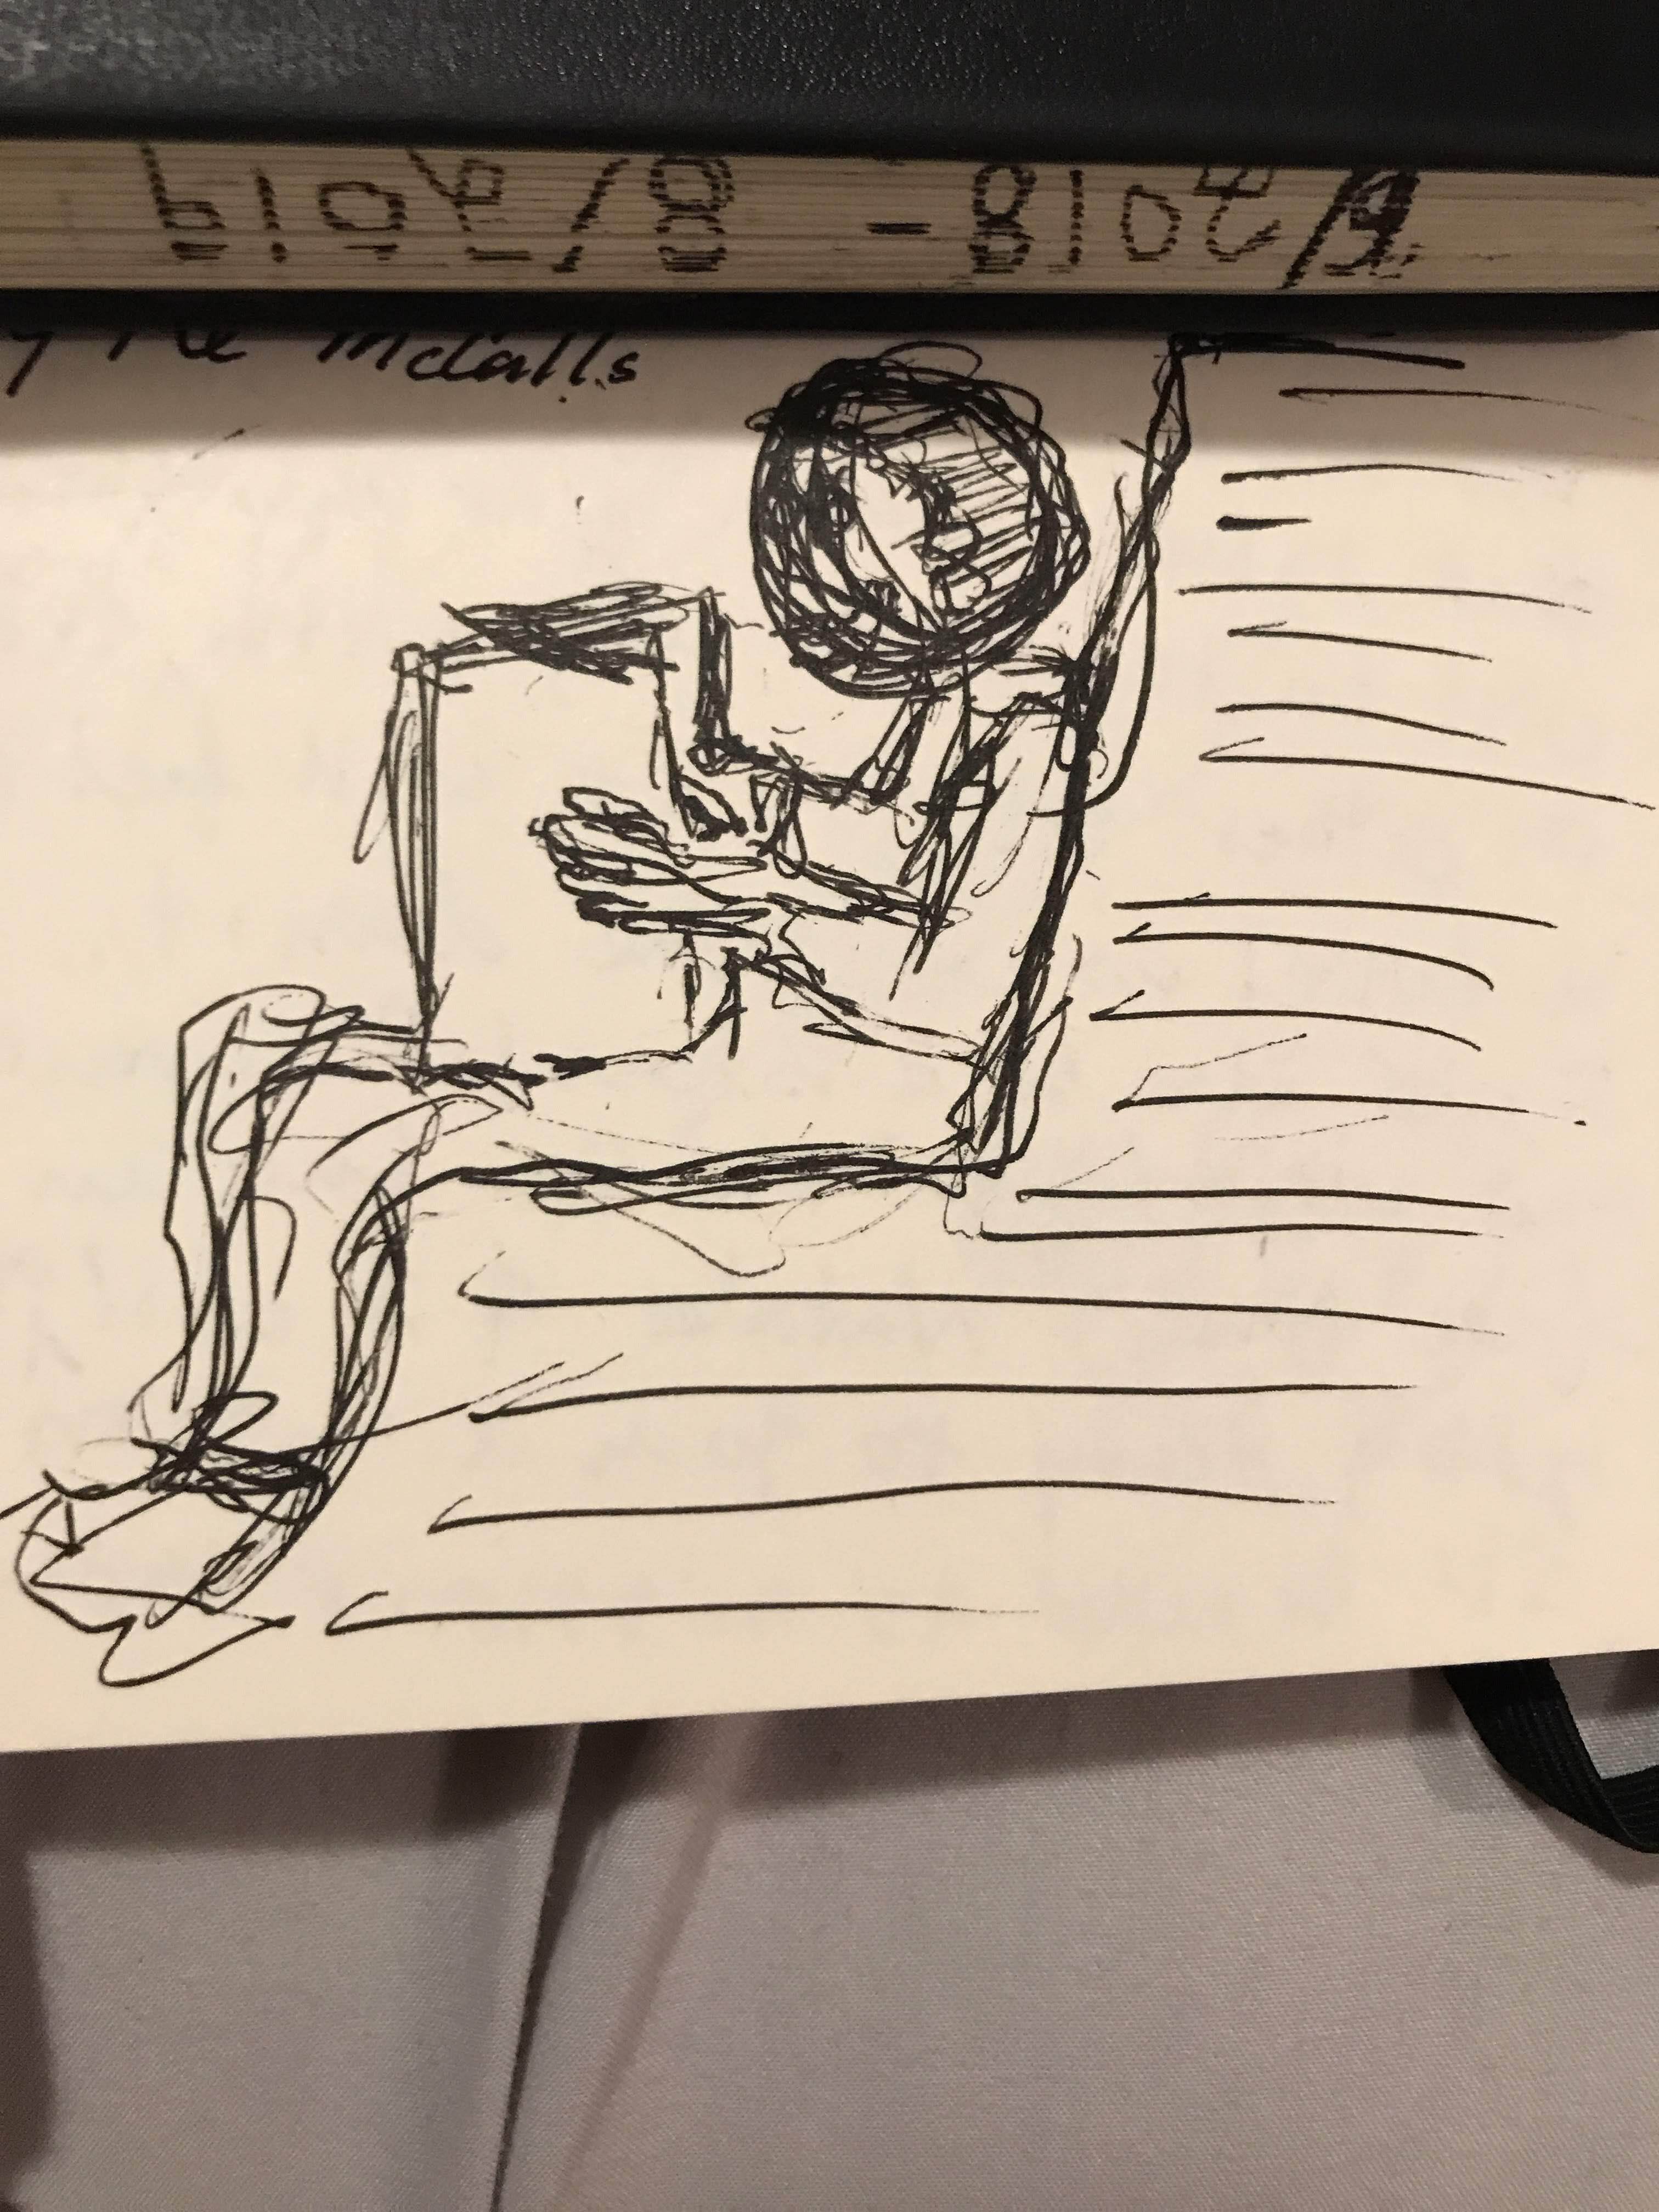 /2018 - 8/2019
McCalls